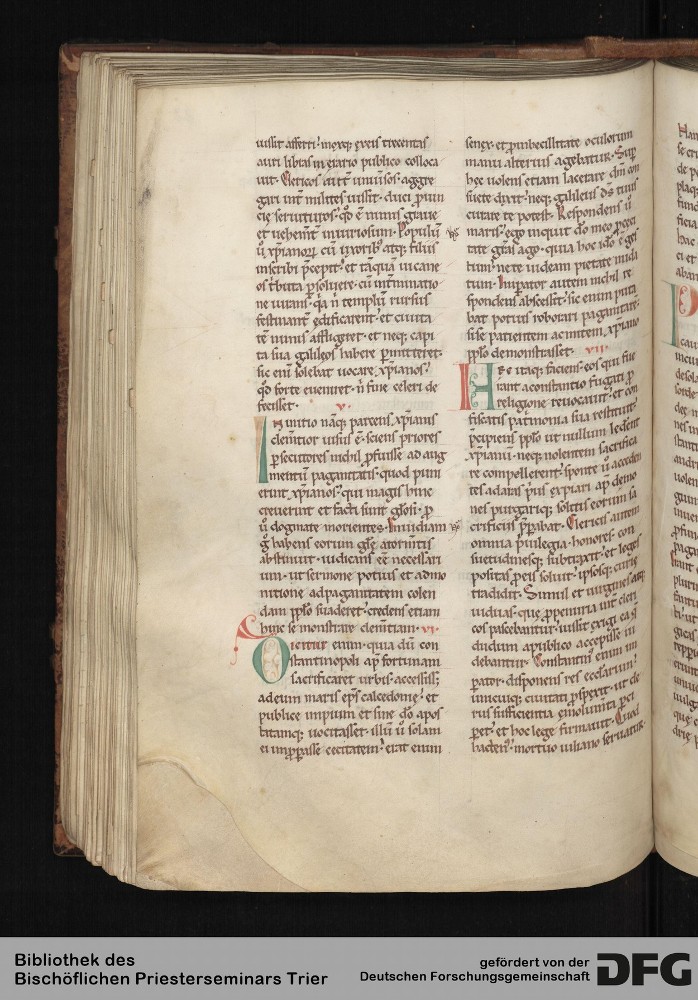 iussit afferri. inexq; greis trecentas
auri libras in erario publico colloca
uit. Clericos autē uniuersos aggre
gari int̄ milites iussit. duci ꝓuin
cię seruituros. qđ ē mimis graue
et uehemt̄ iniuriosum. Populū
ů xp̄ianoꝝ cū uxorib; atq; filiis
inscribi p̄cepit. et tāquā in cane
os tb̄uta ꝑsoluere. cū int̄minatio
ne iurans. qa n̄ templū rursus
festinanť ędificarent. et ciuita
tē nimis affligeret. et neq; capi
ta sua galileos habere ꝑmitteret.
sic eni solebat uocare xp̄ianos.
qđ forte eueniret. n̄ fine celeri de
fecisset. v.
In initio nāq; parcens xp̄ianis
clemt̄ior uisus ē. sciens priores
ꝑsecutores nichil ꝓfuisse ad aug
mentū paganitatis. quod puni
erint xp̄ianos. qui magis hinc
creuerunt et facti sunt gl̄osi. ꝓ
ů dogmate morientes. Inuidiam
g̊ habens eorum glę. a torm̄tis
abstinuit. iudicans eē necessari
um. ut sermone potius et admo
nitione ad paganitatem colen
dam pp̄lo suaderet. credens etiam
hinc se monstrare clemt̄iam. vi.
Dicitur enim. quia dū con
stantinopoli ap̄ fortunam
sacrificaret urbis. accessiss;
ad eum maris ep̄s calcedonię. et
publice impium et sine dō apos
tatamq; uocitasset. illū ů solam
ei impropasse cecitatem. erat enim
senex. et ꝓ inbecillitate oculorum
manu alterius agebatur. Sup̄
hęc uolens etiam lacerare dm̄ con
suete dixit. neq; galileus ds̄ tuus
curare te potest. Respondens ů
maris. ego inquit dō meo ꝑ ceci
tate grās ago. quia hoc idō e gis
tum. ne te uideam pietate nuda
tum. Imꝑator autem nichil re
spondens abscessit. sic enim puta
bat potius roborari paganitatē.
si se patientem ac mitem xp̄iano
pp̄lo demonstrasset. vii.
Hęc itaq; faciens. eos qui fue
rant a constantio fugati ꝓ
religione reuocauit. et con
fiscatis patm̄onia sua restituit.
p̄cipiens pp̄lo ut nullum lędent
xp̄ianū. neq; uolentem sacrifica
re compellerent. sponte ů acceden
tes ad aras. p̄us expiari ap̄ demo
nes purgariq; solitis eorum sa
crificiis p̄parabat. Clericis autem
omnia p̄uilegia. honores. con
suetudinesq; subtraxit. et leges
positas ꝓ eis soluit. ipsosq; curię
tradidit. Simul et uirgines atq;
uiduas. quę ꝓ penuria int̄ cleri
cos pascebantur. iussit exigi ea q̄
dudum a publico accepisse ui
debantur. Constantin; enim im
ꝑator. disponens res ecclarum.
unicuiq; ciuitati ꝓspexit. ut de
rus sufficientia emolumta ꝑci
ꝑet. et hoc lege firmauit. Quod
hacten;. mortuo iuliano seruatur.
Bibliothek des
Bischöflichen Priesterseminars Trier
gefördert von der
Deutschen Forschungsgemeinschaft
DFG